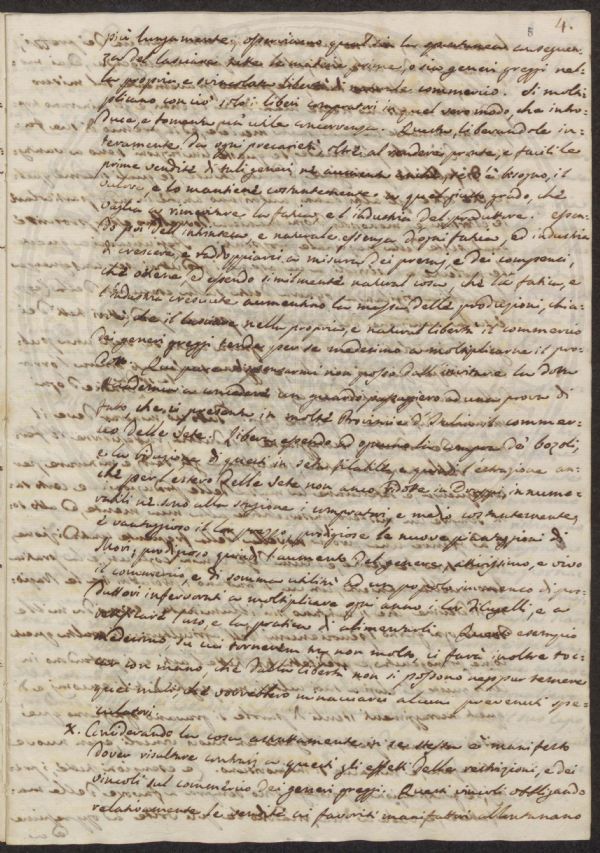 4.
più lungamente, osserviamo qual sia la spontanea conseguen-
za del lasciare tutte le materie prime, o sia generi greggi nel-
la propria e svincolata libertà di naturale commercio. Si molti-
plicano con ciò i liberi compratori in quel vero modo, che intro-
duce, e fomenta più utile concorrenza. Questa, liberandole in-
teramente da ogni precarietà, oltre al rendere pronte, e facili le
prime vendite di tali generi, ne aumenta d'è bisogno, il
valore, e lo mantiene costantemente a quel giusto grado, che
vaglia a rimunerare la fatica, e l'industria del produttore. Essen-
do poi dell'intrinseca, e naturale essenza d'ogni fatica, ed industria
di crescere, e raddoppiarsi a misura dei premj, e dei compensi,
che ottiene, ed essendo similmente natural cosa, che la fatica, e
l'industria cresciute aumentino la massa delle produzioni, chia-
ro è, che il lasciare nella propria, e natural libertà il commercio
dei generi greggi tende per se medesimo a moltiplicarne il pro-
dotto. Quì pare dispensarmi non possa dall'invitare la dotta
Accademia a concedere un guardo passaggero ad una prova di
fatto, che ci presenta in molte Provincie d'Italia il commer-
cio delle Sete. Libera essendo ad ognuno la compra de' bozzoli,
e la riduzione di questi in seta filata, e quindi l'estrazione an-
che per l'estero delle Sete non anco ridotte in Drappi, innume-
rabili ne sono alla stagione i compratori, e medio costantemente,
e vantaggioso il lor prezzo; prodigiose le nuove piantagioni di
Mori; prodigioso quindi l'aumento del genere; attivissimo, e vivo
il commercio, e di somma utilità ad un popolo immenso di pro-
duttori infervorati a moltiplicare ogni anno i lor Filugelli, e a
perfezionare l'uso, e la pratica di alimentarli. Questo esempio
medesimo, su cui torneremo tra non molto, ci farà inoltre toc-
car con mano, che dalla libertà non si possono neppur temere
quei mali, che vorrebbero minacciarci alcuni prevenuti spe-
culatori.
X. Considerando la cosa astrattamente in se stessa è manifesto
dover risultare contrarj a questi gli effetti delle restrizioni, e dei
vincoli sul commercio dei generi greggi. Questi vincoli obbligando
relativamente le vendite ai favoriti manifattori allontanano